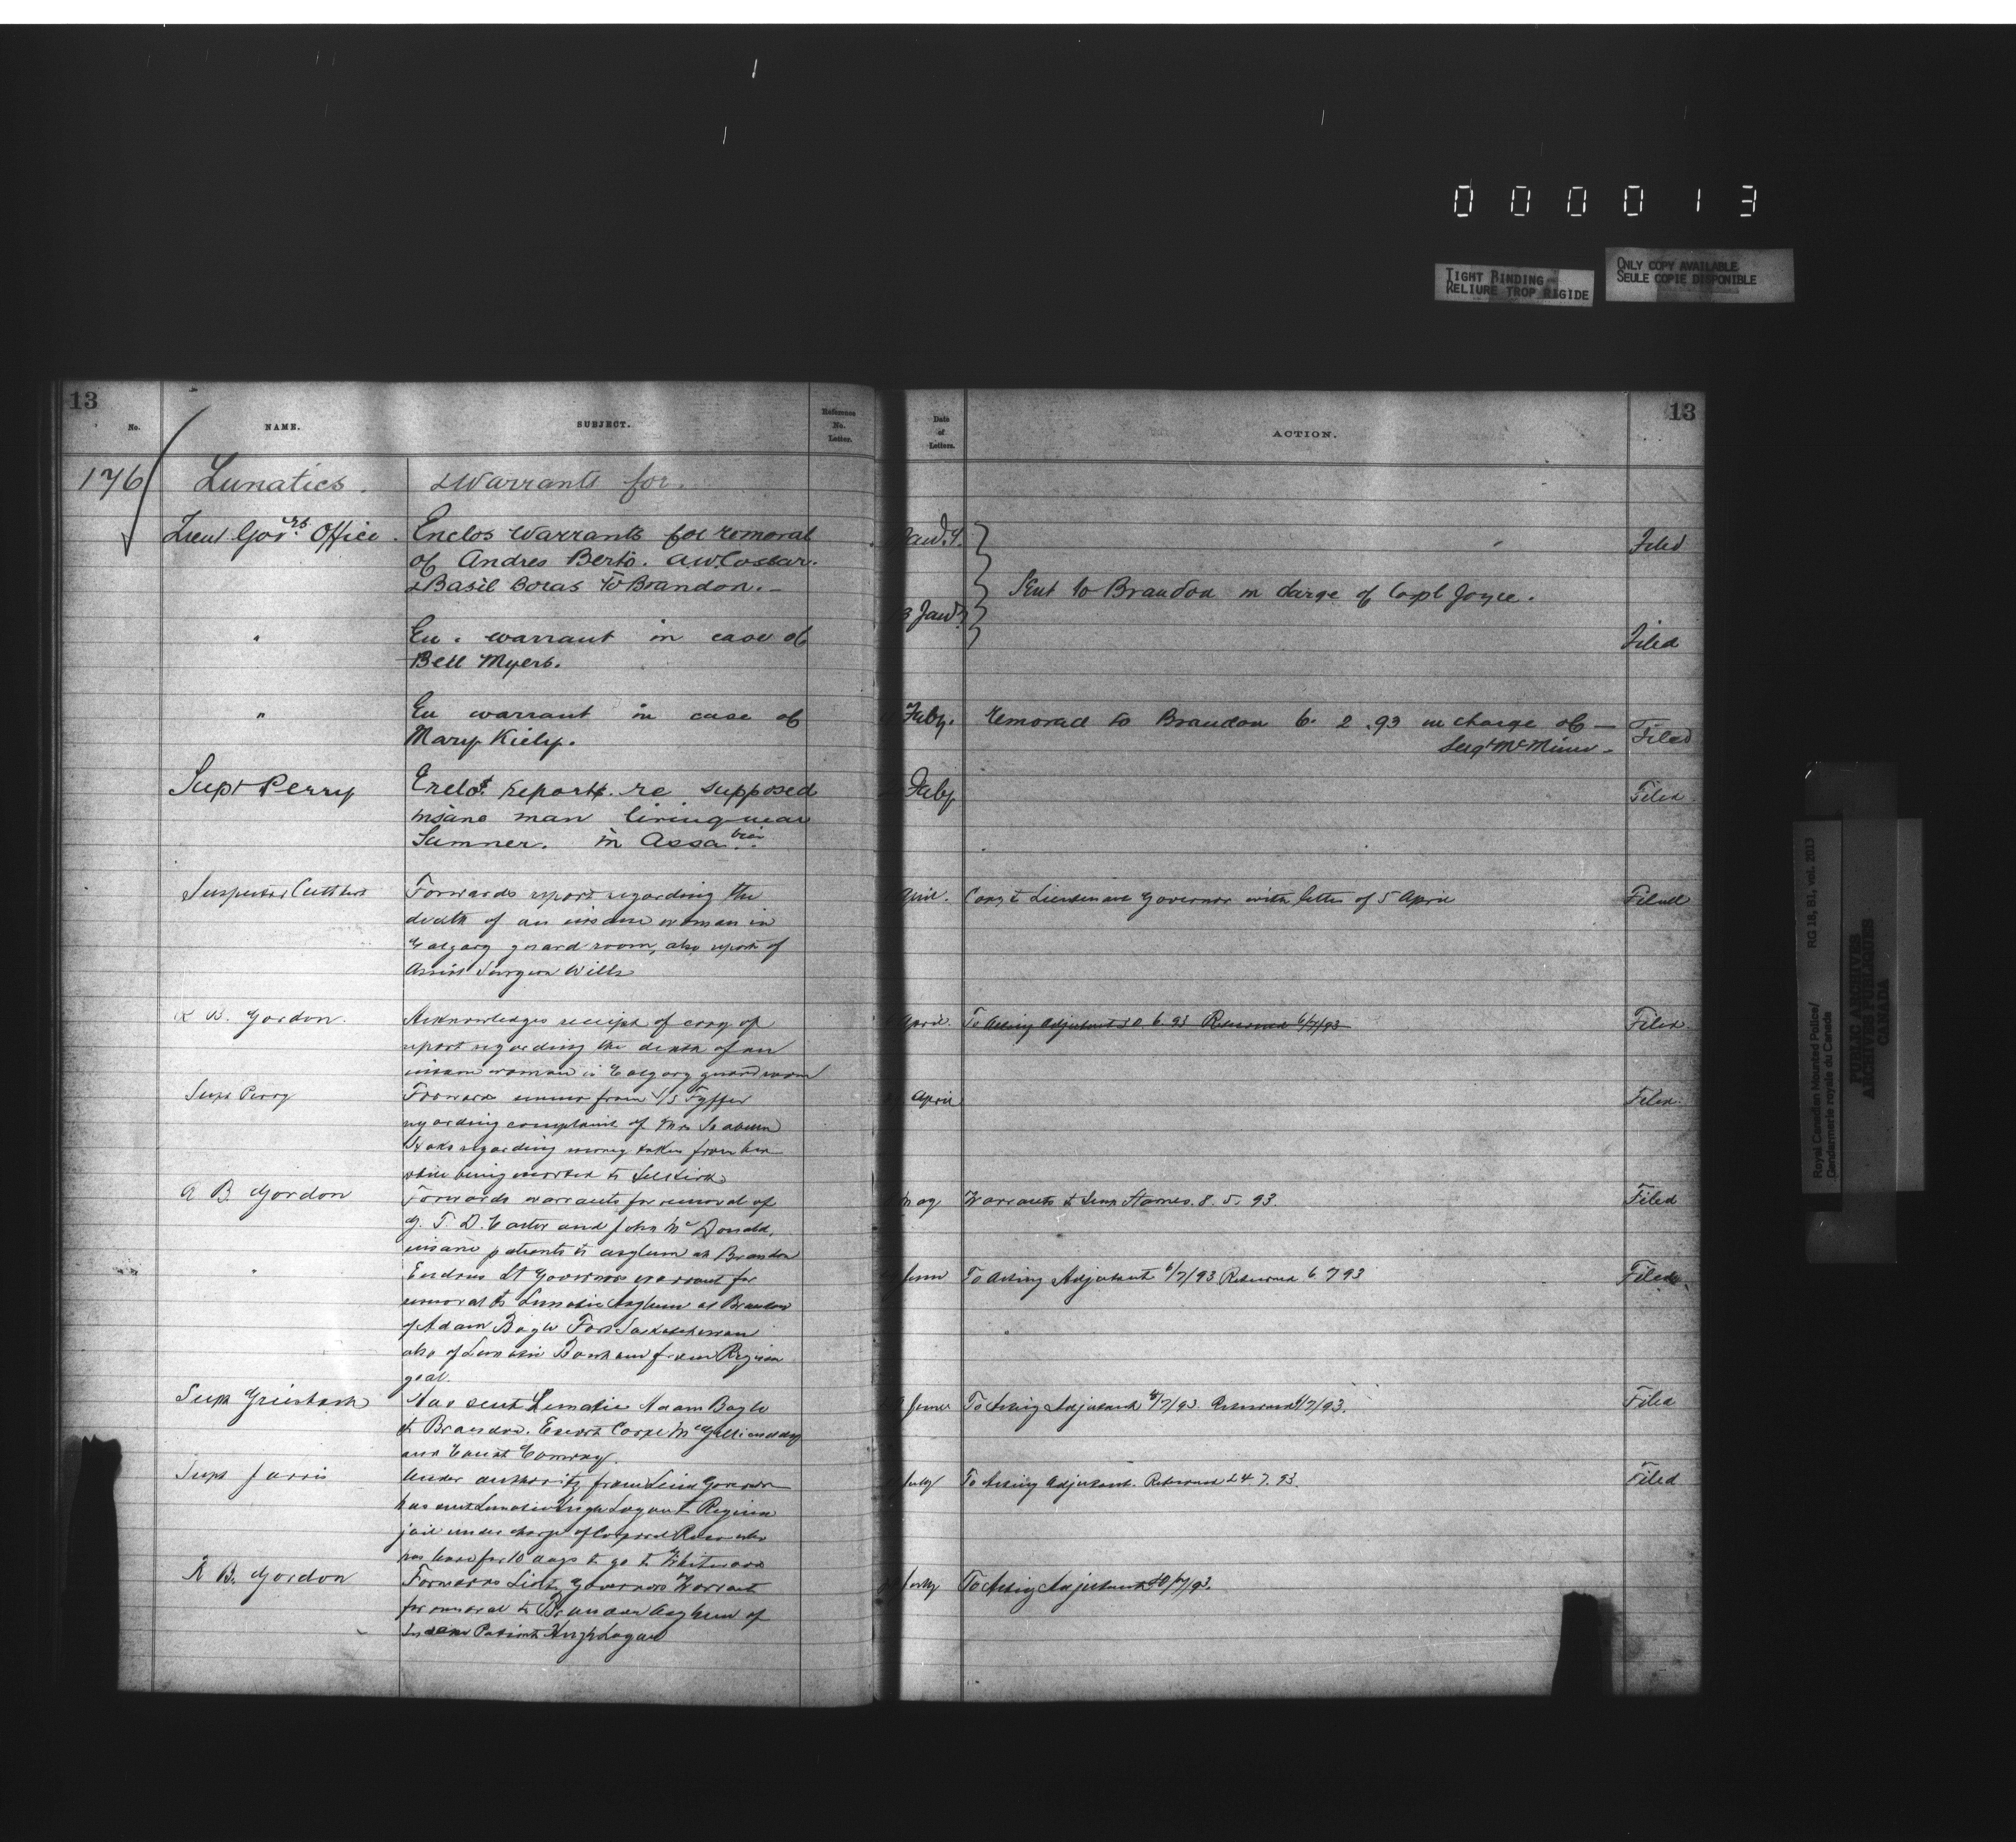 0 0 0 0 1 3
TIGHT BINDING
RELIURE TROP RIGIDE
ONLY COPY AVAILABLE
SEULE COPIE DISPONIBLE
13
No.
NAME.
SUBJECT.
Reference
No.
Letter.
176
Lunatics.
Warrants for.
Lieut Govrs Office.
Enclos Warrants for removal
of Andres Berto. A.W. Costar.
& Basil Boras to Brandon.
"
En. warrant in case of
Bell Myers.
"
En warrant in case of
Mary Kiely.
Supt Perry
report re supposed
insane man living near
Sumner. in Assa
Inspector Cuthbert
Forwards report regarding the
death of an insane woman in
Calgary guard room, also report of
Assist Surgeon Wills
R B. Gordon.
Acknowledges receipt of copy of
report regarding the death of an
insane woman in Calgary guard room
Supt Perry
Forwards from S/S Fyffer
regarding complaint of Mrs
regarding money taken from her
while being escorted to Selkirk
R B Gordon
Forwards warrants for removal of
G. T. D. Carter and John McDonald,
insane patients to asylum at Brandon
"
Encloses Lt Governors warrant for
removal to Lunatic Asylum at Brandon
of Adam Bogle Fort Saskatchewan
also of Lunatic from Regina
goal.
Supt Griesbach
Has sent Lunatic Adam Bogle
to Brandon. Escort Corpl
and Const Conway.
Supt Jarvis
Under authority from Lieut Governor
has sent Lunatic Hugh Logan to Regina
jail under charge of Corporal who
has leave for 10 days to go to Whitewood
R B. Gordon
Forwards Lieut Governors Warrant
for removal to Brandon Asylum of
Insane Patient Hugh Logan
13
Date
of
Letters.
ACTION.
Jany. 4.
Filed
Sent to Brandon in charge of Corpl Joyce.
3 Jany
Filed
Faby.
removed to Brandon 6. 2. 93 in charge of
Sergt
Filed
Faby
Filed
April.
Copy to Lieutenant Governor with letter of 5 April
Filed
April.
To Acting Adjutant 30 6 93 Returned 6/7/93
Filed
April
Filed.
May
Warrants to Supt Starnes. 8. 5. 93.
Filed
June
To Acting Adjutant 6/7/93 Returned 6 7 93
Filed
June
To Acting Adjutant /7/93. Returned /7/93.
Filed
July
To Acting Adjutant. Returned 24 7. 93.
Filed
July
To Acting Adjutant /93.
Royal Canadian Mounted Police/
Gendarmerie royale du Canada
RG 18, B1, vol. 2013
PUBLIC ARCHIVES
ARCHIVES PUBLIQUES
CANADA